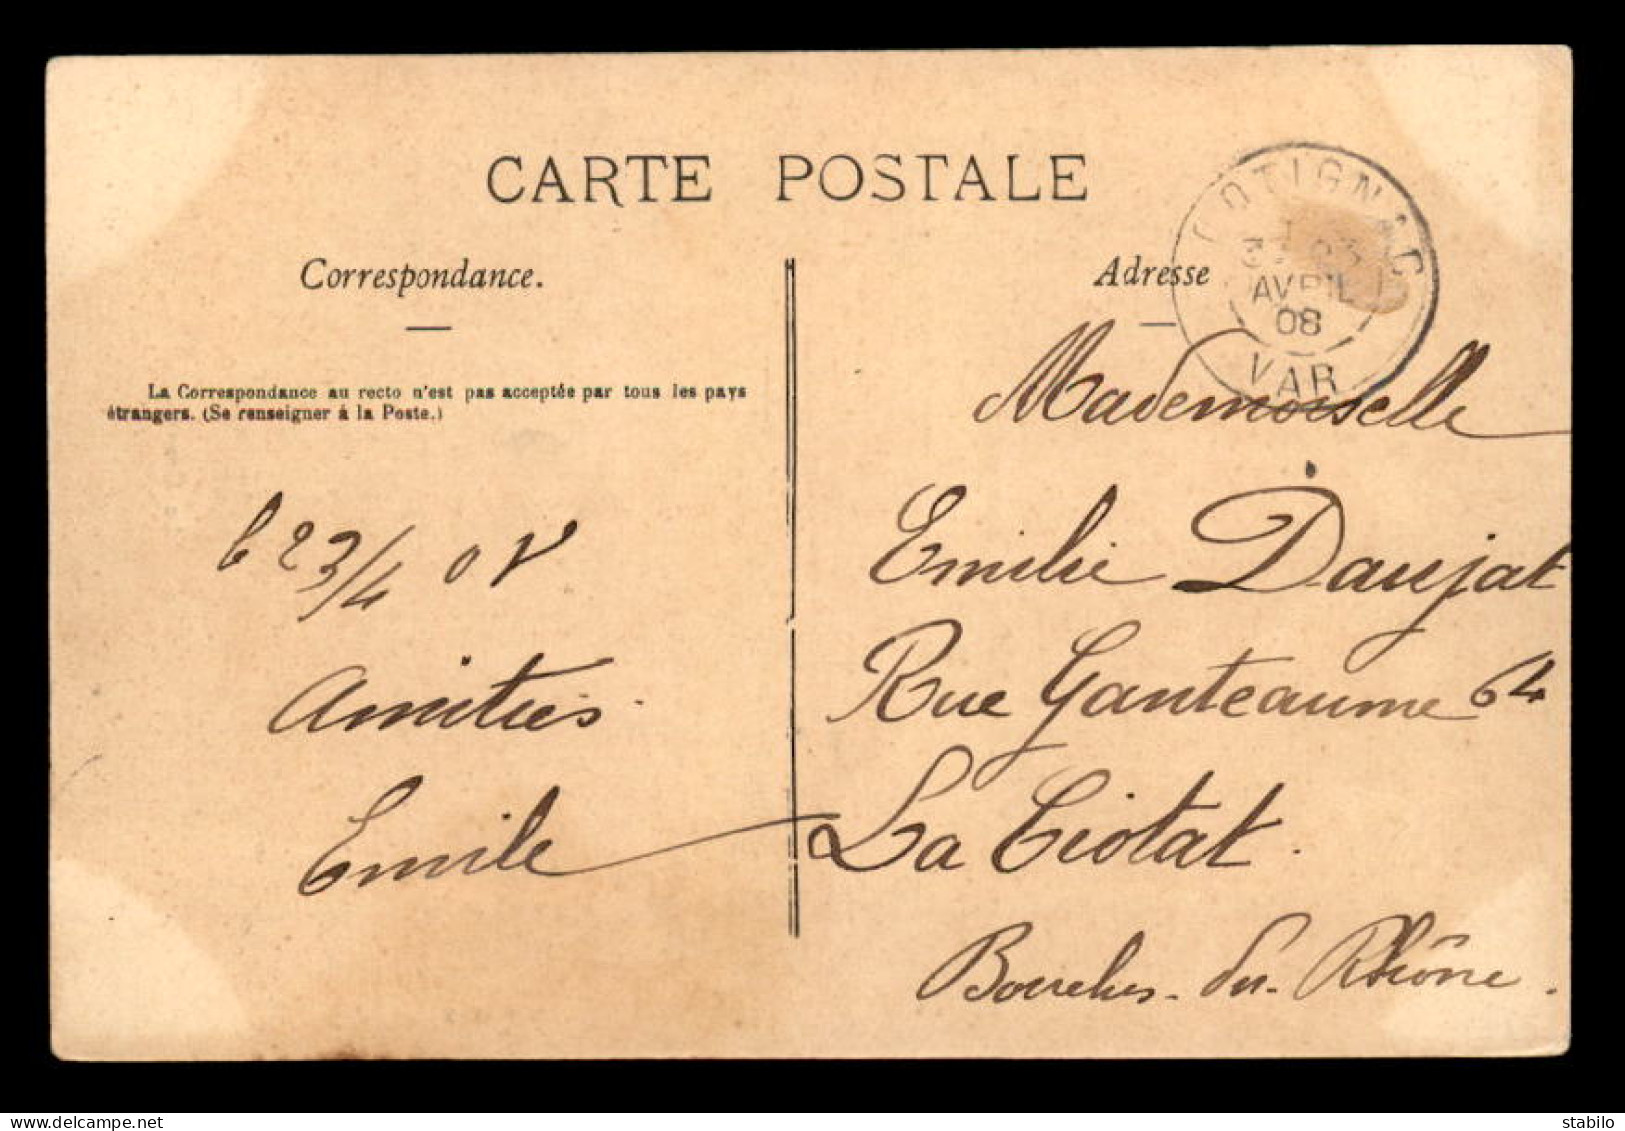 CARTE POSTALE
Correspondance.
La Correspondance au recto n'est pas acceptée par tous les pays
étrangers. (Se renseigner à la Poste.)
23/4 08
Amitiés
Emile
Adresse
COTIGNAC
AVRIL
08
VAR
Mademoiselle
Emilie Daujat
Rue Ganteaume 64
La Ciotat.
Bouches-du-Rhône.
www.delcampe.net
stabilo